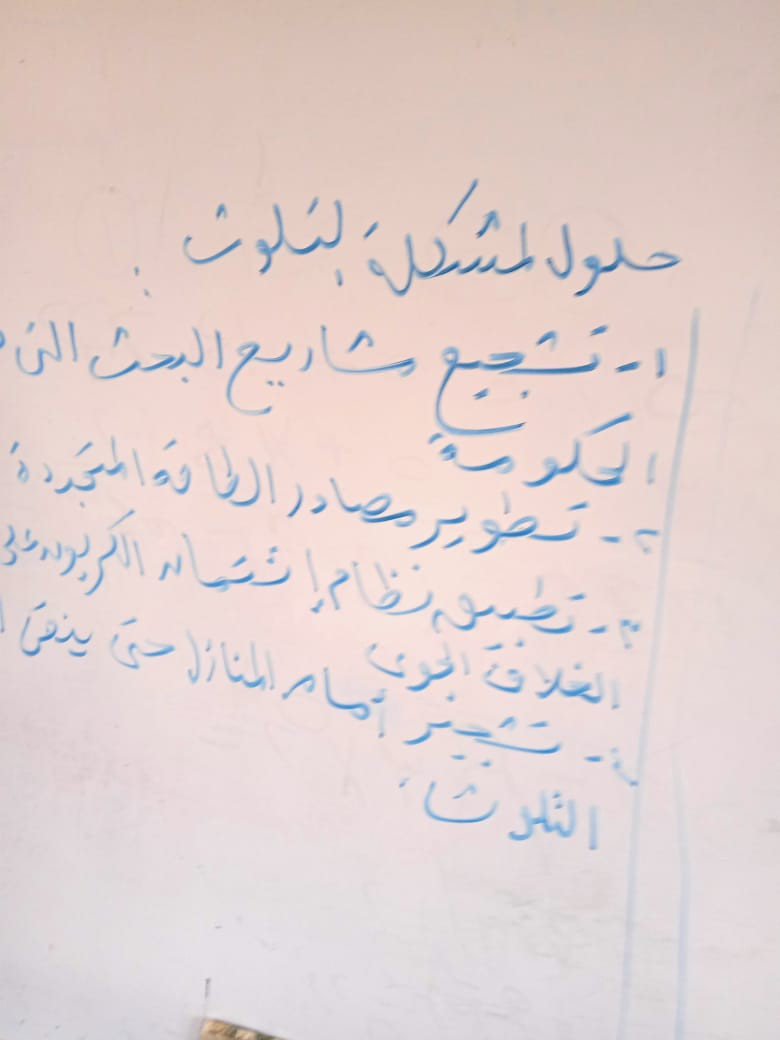 حلول لمشكلة التلوث :
١- تشجيع مشاريع البحث التى
الحكومية
٢- تطوير مصادر الطاقة المتجددة
٣- تطبيق نظام إئتمان الكربون على
الغلاف الجوى
٤- تشجير أمام المنازل حتى ينقى
التلوث .